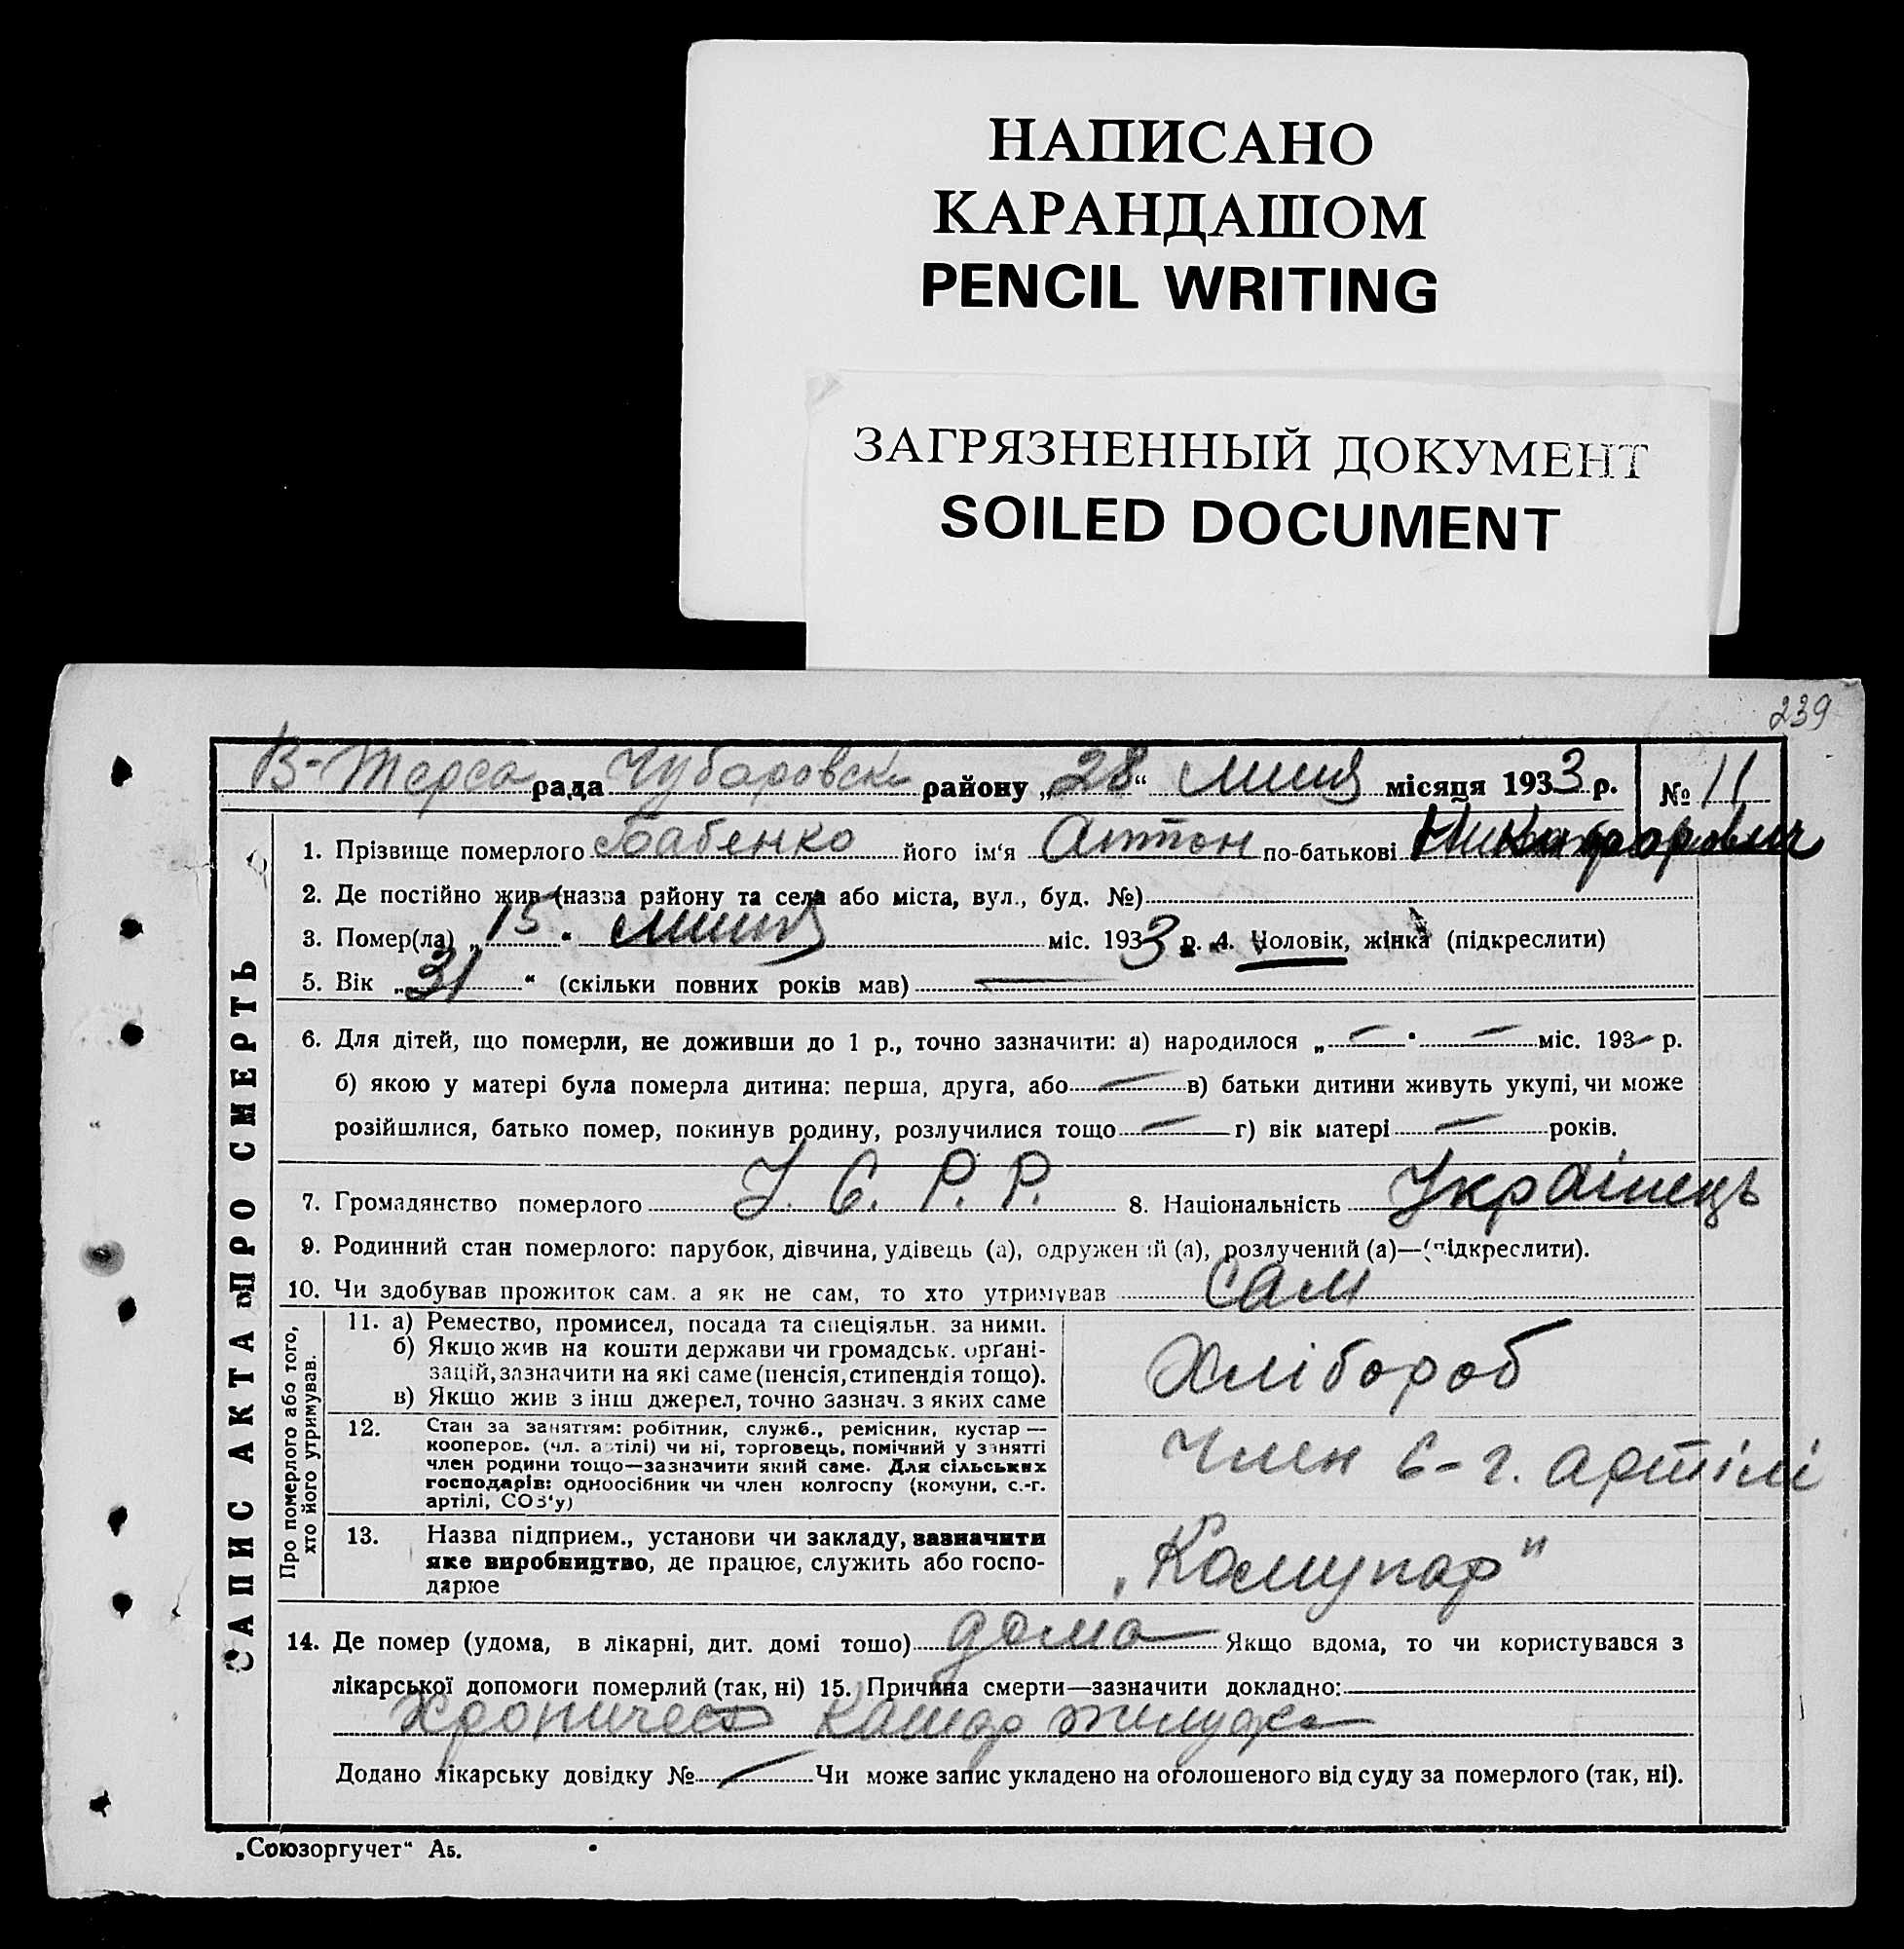 НАПИСАНО
КАРАНДАШОМ
PENCIL WRITING
ЗАГРЯЗНЕННЫЙ ДОКУМЕНТ
SOILED DOCUMENT
239
В-Терса рада Чубаровск району „28“ липня місяця 1933 р. № 11
ЗАПИС АКТА ПРО СМЕРТЬ
1. Прізвище померлого Бабенко його ім‘я Антон по-батькові Никифорович
2. Де постійно жив (назва району та села або міста, вул., буд. №)
3. Помер(ла) „15“ липня міс. 1933 р. 4. Чоловік, жінка (підкреслити)
5. Вік „31“ (скільки повних років мав) —
6. Для дітей, що померли, не доживши до 1 р., точно зазначити: а) народилося „—“ — міс. 193— р.
б) якою у матері була померла дитина: перша, друга, або — в) батьки дитини живуть укупі, чи може
розійшлися, батько помер, покинув родину, розлучилися тощо — г) вік матері — років.
7. Громадянство померлого У. С. Р. Р. 8. Національність Українець
9. Родинний стан померлого: парубок, дівчина, удівець (а), одружений (а), розлучений (а)—(підкреслити).
10. Чи здобував прожиток сам. а як не сам, то хто утримував сам
Про померлого або того,
хто його утримував.
11. а) Ремество, промисел, посада та спеціяльн. за ними.
б) Якщо жив на кошти держави чи громадськ. органі-
зацій, зазначити на які саме (пенсія, стипендія тощо).
в) Якщо жив з інш джерел, точно зазнач. з яких саме
Хлібороб
12. Стан за заняттям: робітник, служб., ремісник, кустар —
кооперов. (чл. артілі) чи ні, торговець, помічний у занятті
член родини тощо—зазначити який саме. Для сільських
господарів: одноосібник чи член колгоспу (комуни, с.-г.
артілі, СОЗ‘у)
Член с-г. артілі
13. Назва підприєм., установи чи закладу, зазначити
яке виробництво, де працює, служить або госпо-
дарює
„Комунар"
14. Де помер (удома, в лікарні, дит. домі тошо) дома Якщо вдома, то чи користувався з
лікарської допомоги померлий (так, ні) 15. Причина смерти—зазначити докладно:
Хроническ Катар желудка
Додано лікарську довідку № — Чи може запис укладено на оголошеного від суду за померлого (так, ні).
„Союзоргучет“ А5.